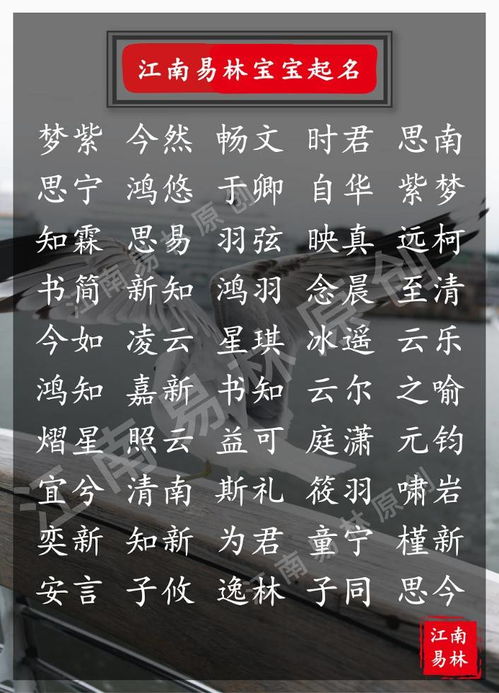 江南易林宝宝起名
梦紫 今然 畅文 时君 思南
思宁 鸿悠 于卿 自华 紫梦
知霖 思易 羽弦 映真 远柯
书简 新知 鸿羽 念晨 至清
今如 凌云 星琪 冰遥 云乐
鸿知 嘉新 书知 云尔 之喻
熠星 照云 益可 庭潇 元钧
宜兮 清南 斯礼 筱羽 啸岩
奕新 知新 为君 童宁 槿新
安言 子攸 逸林 子同 思今
江南易林原创
江南易林原创
江南易林原创
江南
易林